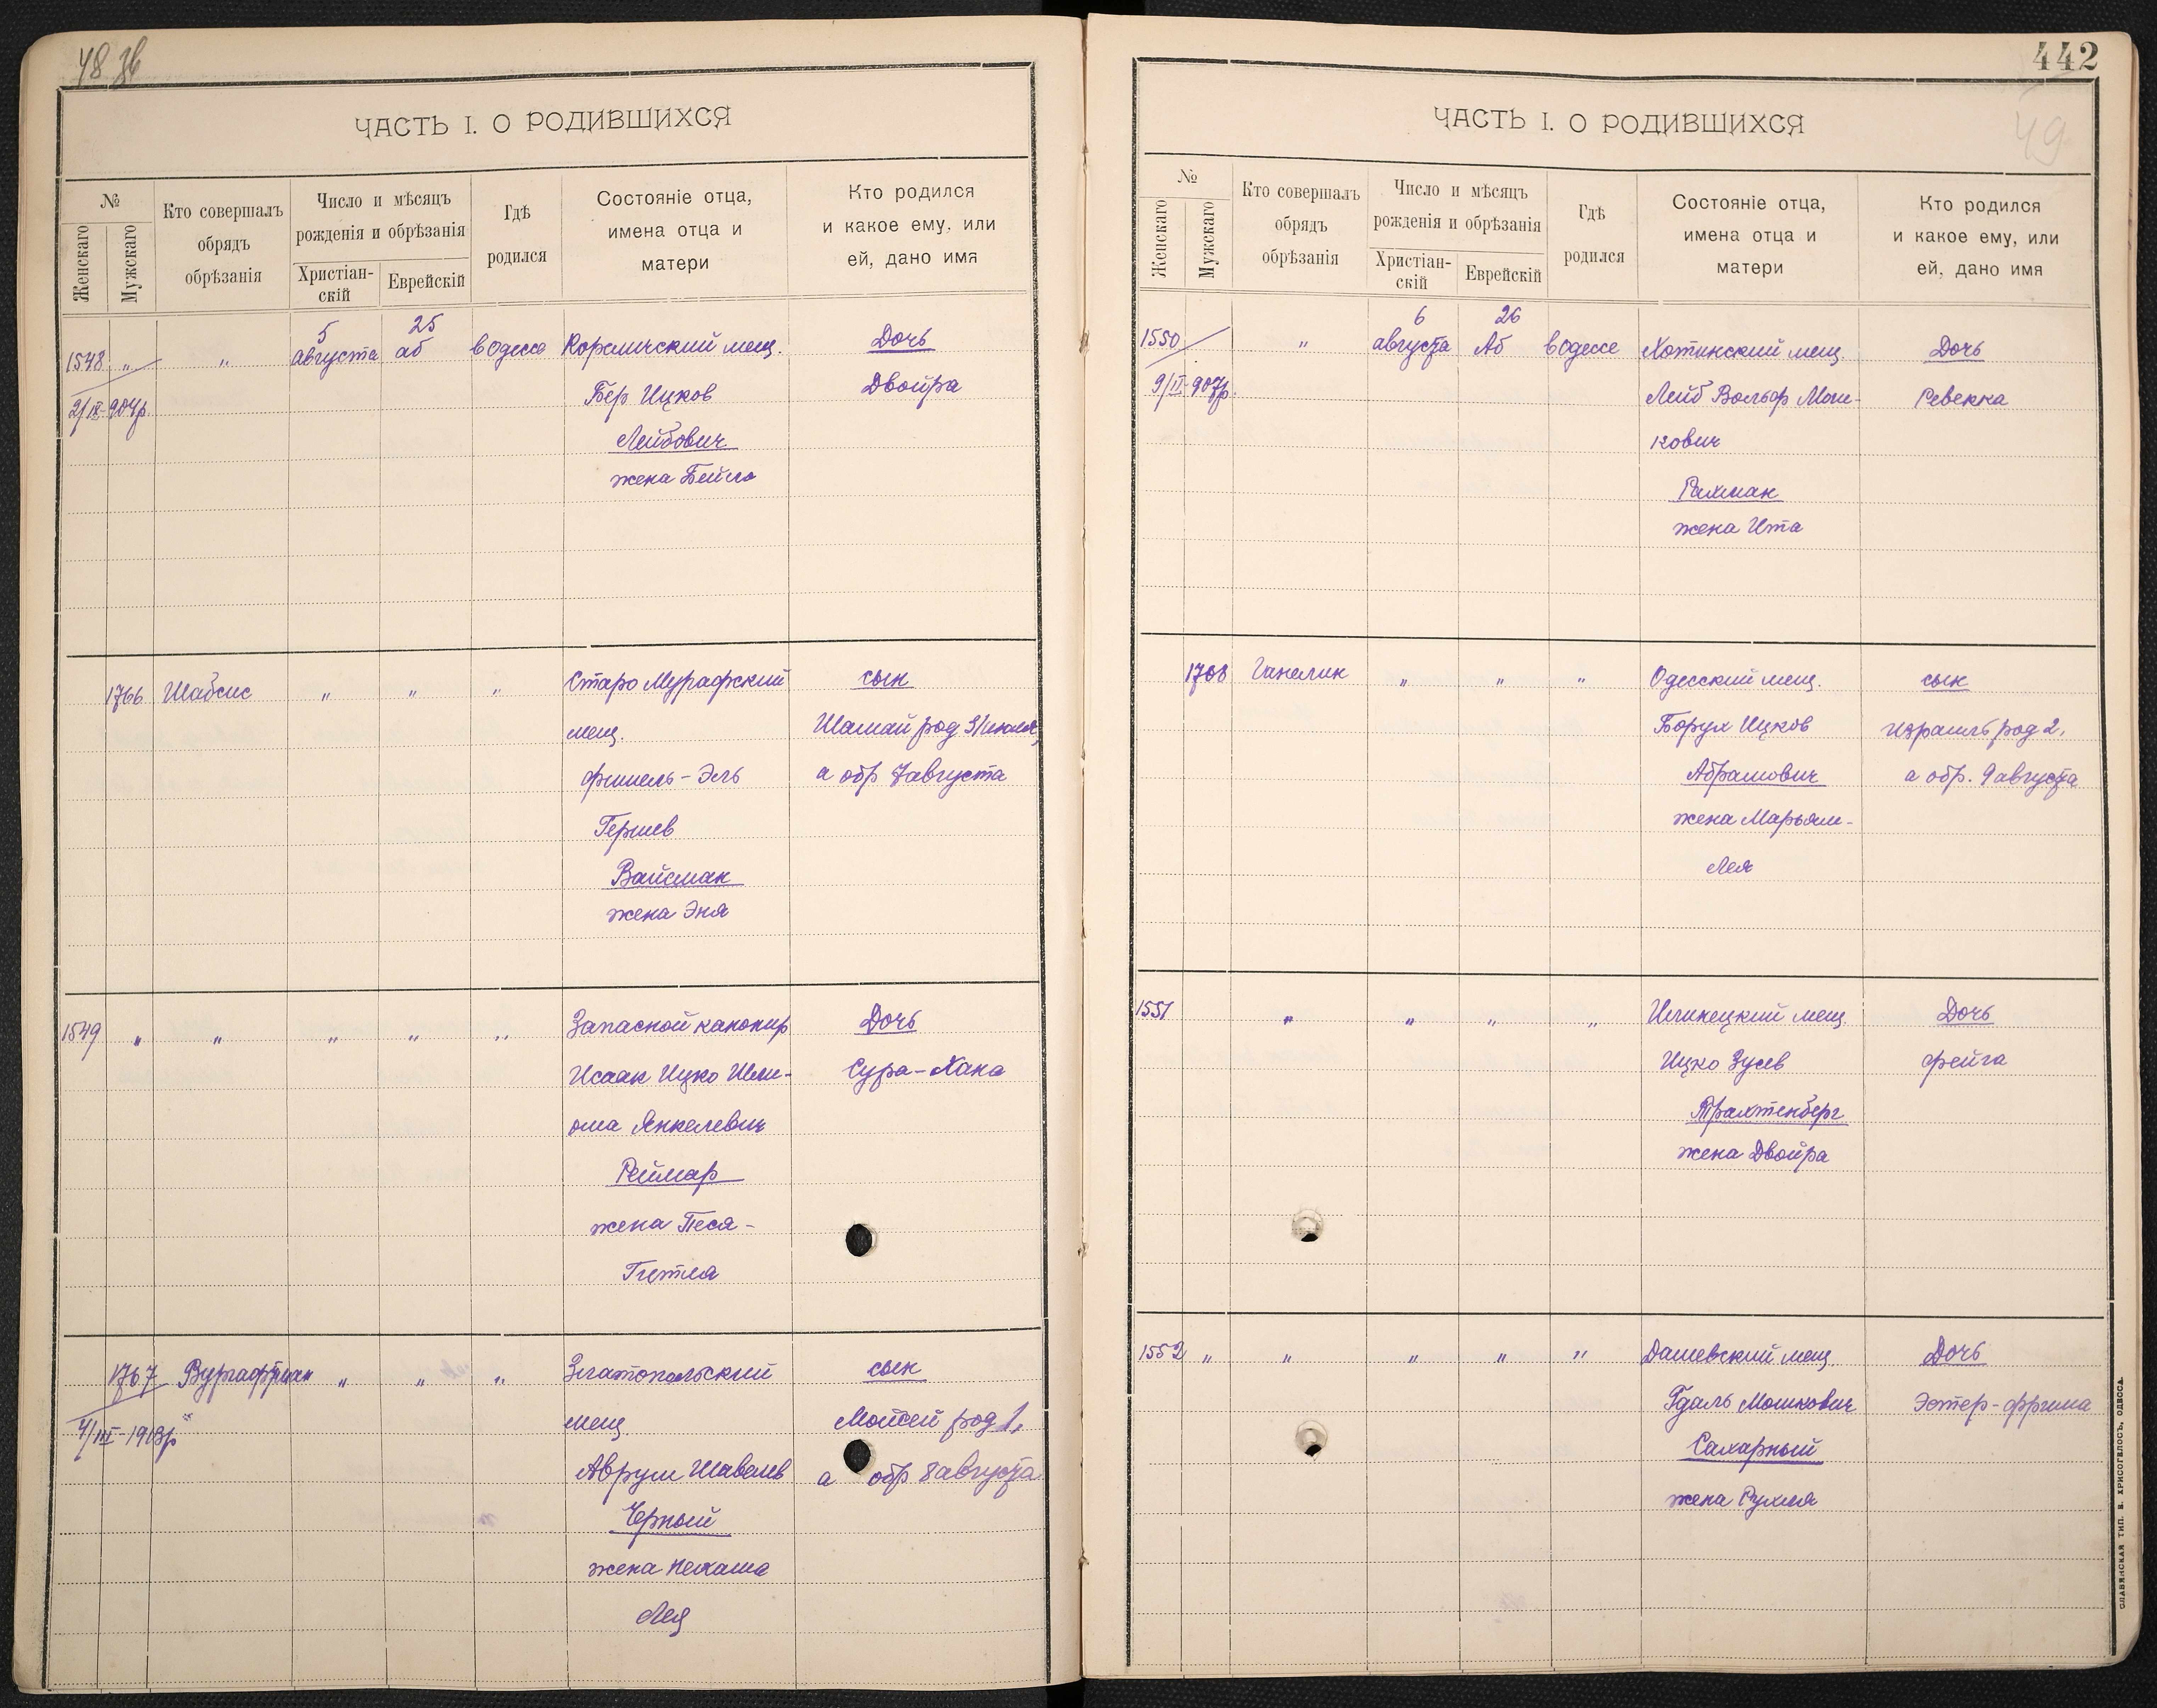 48 зв
ЧАСТЬ I. О РОДИВШИХСЯ
№
Женскаго
Мужскаго
Кто совершалъ
обрядъ
обрѣзанія
Число и мѣсяцъ
рожденія и обрѣзанія
Христіан-
скій
Еврейскій
Гдѣ
родился
Состояніе отца,
имена отца и
матери
Кто родился
и какое ему, или
ей, дано имя
1548 „ „ 5 августа 25 аб в Одессе Кореличский мещ. Дочь
Бер Ицков Двойра
Лейбович
жена Бейла
1766 Шабсис „ „ „ Старо Мурафский сын
мещ. Шамай род 31 июля,
фишель-Эль а обр 7 августа
Гершев
Вайсман
жена Эня
1549 „ „ „ „ „ Запасной канонир Дочь
Исаак Ицко Шли- Сура-Хана
ома Янкелевич
Реймар
жена Песя-
Гитля
1767 Вургафтман „ „ „ Златопольский сын
4/III-1913р мещ Мойсей род 1,
Аврум Шавелев а обр 8 августа
Черный
жена Нехама
Лея
442
49
ЧАСТЬ I. О РОДИВШИХСЯ
№
Женскаго
Мужскаго
Кто совершалъ
обрядъ
обрѣзанія
Число и мѣсяцъ
рожденія и обрѣзанія
Христіан-
скій
Еврейскій
Гдѣ
родился
Состояніе отца,
имена отца и
матери
Кто родился
и какое ему, или
ей, дано имя
1550 „ 6 августа 26 Аб в Одессе Хотинский мещ. Дочь
9/II-907р. Лейб Вольф Мош- Ревекка
кович
Рахман
жена Ита
1768 Ганелин „ „ „ Одесский мещ. сын
Борух Ицков Израиль род 2,
Абрамович а обр. 9 августа
жена Марьям-
Лея
1551 „ „ „ „ Илинецкий мещ Дочь
Ицко Зусев фейга
Трахтенберг
жена Двойра
1552 „ „ „ „ „ Дашевский мещ Дочь
Гдаль Мошкович Эстер-фрима
Сахарный
жена Рухля
СЛАВЯНСКАЯ ТИП. Е. ХРИСОГЕЛОСЪ, ОДЕССА.